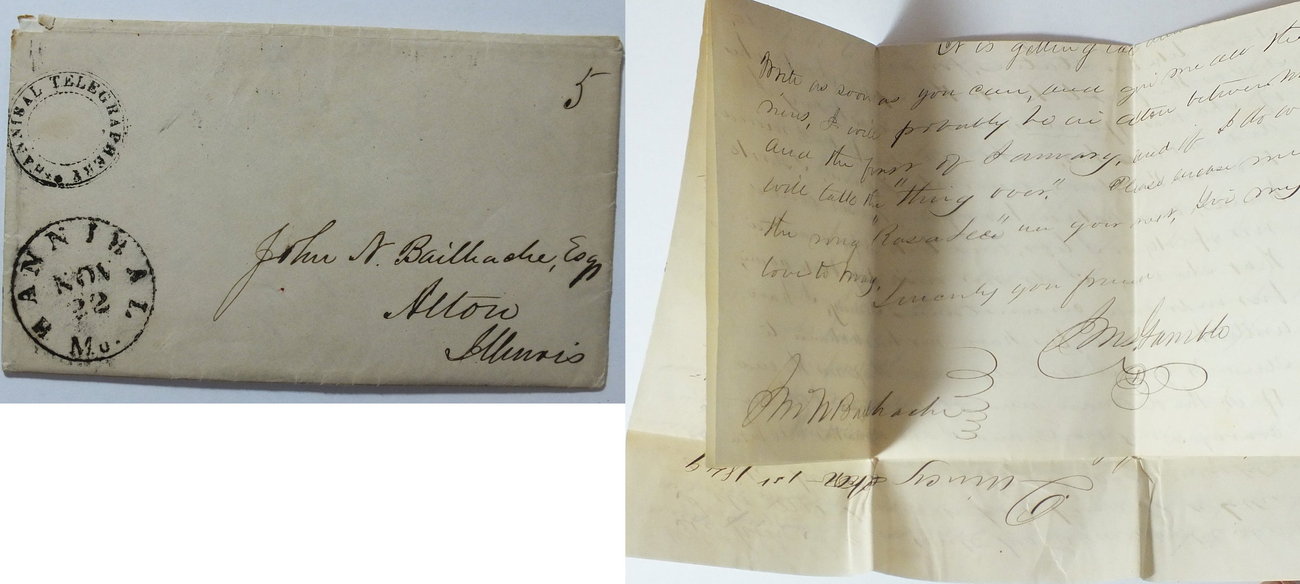 HANNIBAL TELEGRAPHERY
5
HANNIBAL
NOV
22
Mo.
John N. Bailhache, Esq
Alton
Illinois
It is getting
Write as soon as you can, and give me all the
news, I will probably be in Alton between
and the first of January, and if I do
will talk the "thing over". Please excuse
the song "Rosa Lee" in your next, Give my
love to May.
Sincerely your friend
Jas Gamble
Jno N Bailhache
Quincy